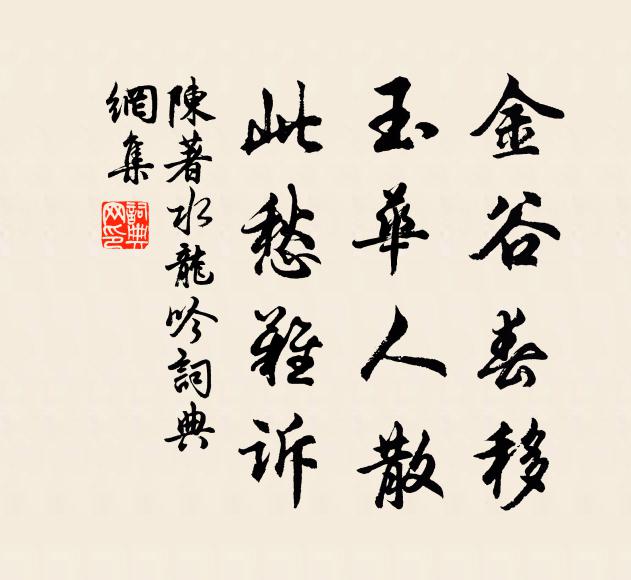 金谷春移
玉華人散
此愁難訴
陳著水龍吟詞典
網集
詞典
网印